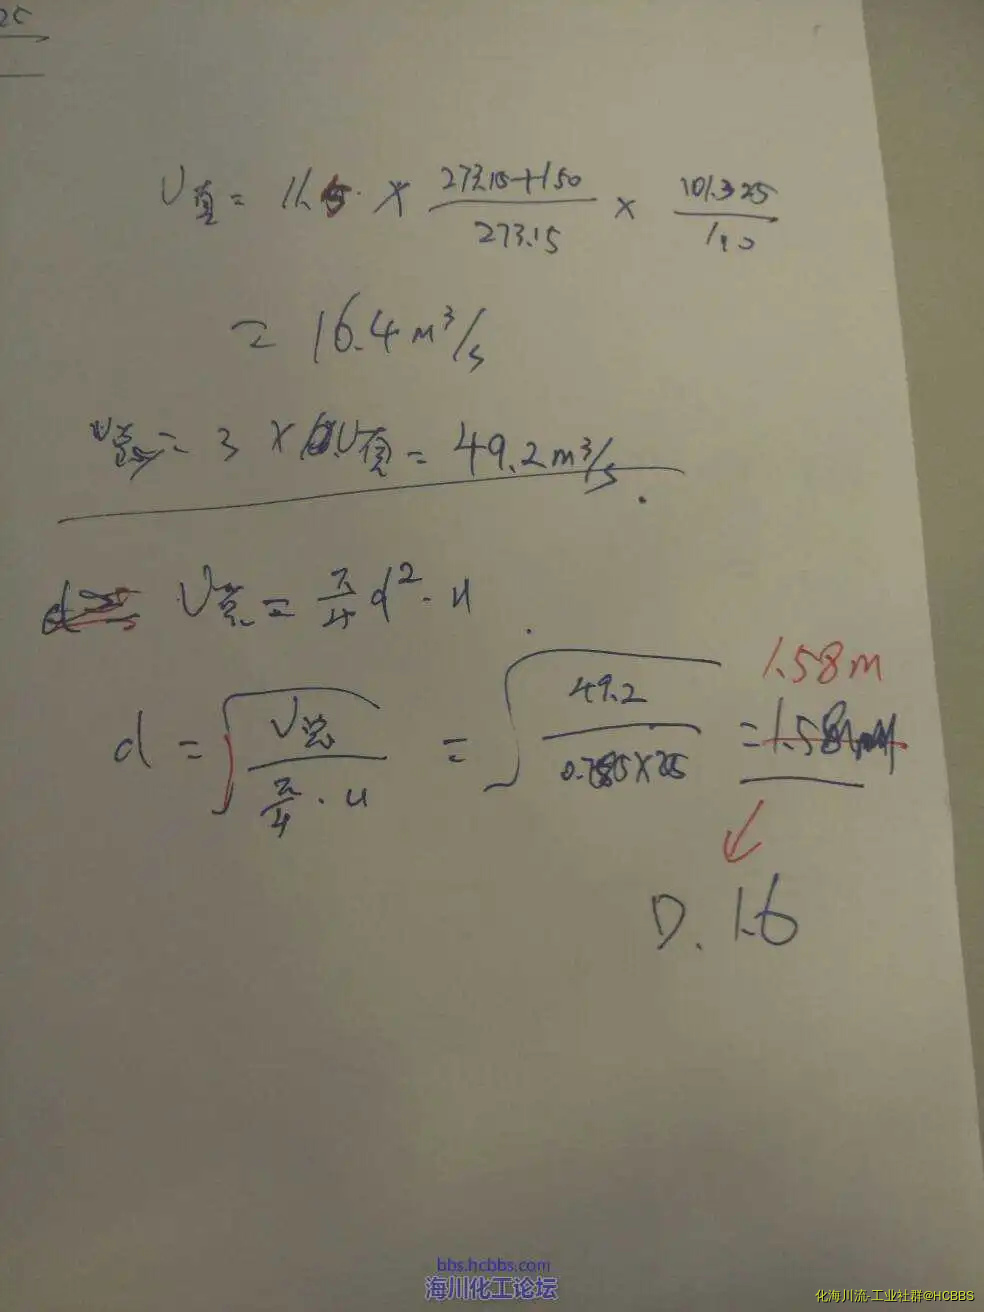 25
V真 = 11.5 × (273.15+150)/273.15 × 101.325/110
= 16.4 m³/s
V总 = 3 × V真 = 49.2 m³/s
V总 = π/4 d² · u
1.58m
d = √(V总/(π/4 · u)) = √(49.2/(0.785×25)) =
D. 1.6
bbs.hcbbs.com
海川化工论坛
化海川流-工业社群@HCBBS